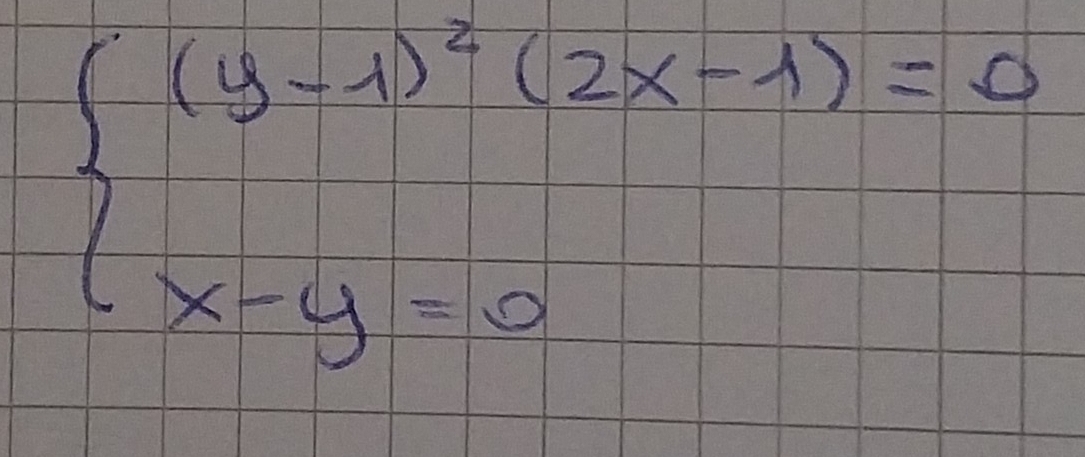 (y-1)² (2x-1) = 0
x-y = 0